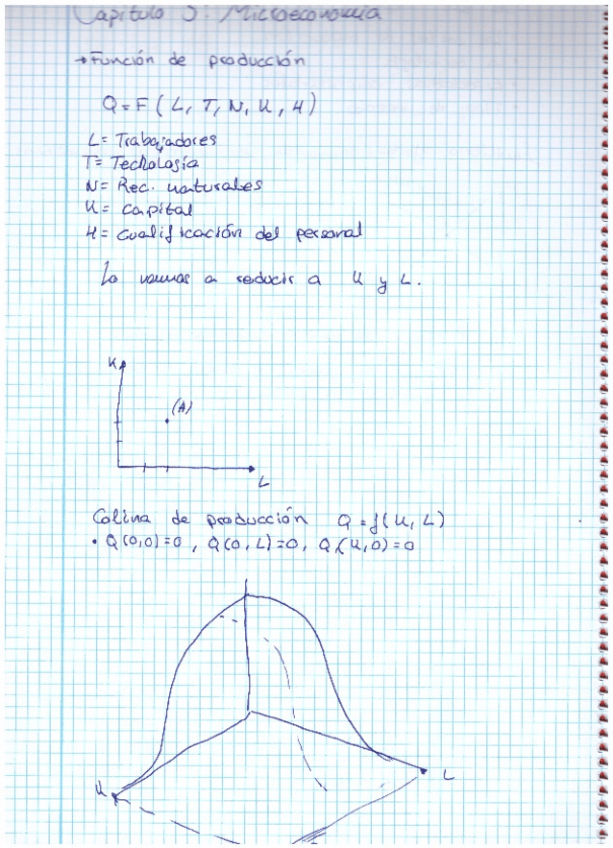 Capítulo 5: Microeconomía
→ Función de producción
Q = F ( L, T, N, K, H )
L = Trabajadores
T = Tecnología
N = Rec. naturales
K = Capital
H = Cualificación del personal
Lo vamos a reducir a K y L.
K
(A)
L
Colina de producción Q = f(K, L)
• Q(0,0)=0, Q(0,L)=0, Q(K,0)=0
K
L